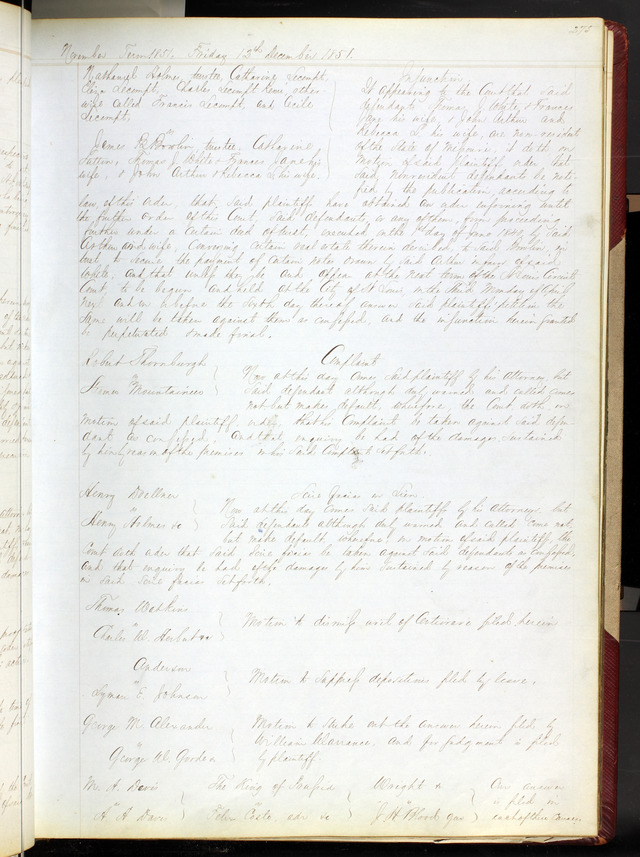 November Term 1851, Friday 12th December 1851.
Nathaniel Holmes, trustee, Catharine Lecompt,
Eliza Lecompt, Charles Lecompt
wife called Francis Lecompt, and Cecile
Lecompt,
vs
James B. Bowlin, trustee, Catharine
Sutton, Thomas J. White & Frances Jane his
wife, & John Arthur & Rebecca L. his wife,
Injunction.
It appearing to the Court that said
defendants Thomas J. White, & Frances
Jane his wife, & John Arthur and
Rebecca L. his wife, are non residents
of the State of Missouri, it is on
Motion of said plaintiff order, that
said nonresident defendants be noti-
fied by the publication, according to
law of this order, that, said plaintiff have obtained an order informing until
the further order of this Court, said defendants, or any of them, from proceeding
further under a certain deed of trust, executed on the 1st day of June 1840, by said
Arthur and wife, conveying certain real estate therein described to said Bowlin, in
trust to secure the payment of certain notes drawn by said Arthur in favor of said
White, and that unless they be and appear at the next term of the St Louis Circuit
Court to be begun and held at the City of St Louis on the third Monday of April
next and on or before the sixth day thereof answer said plaintiffs petition the
same will be taken against them as confessed, and the injunction herein granted
be perpetuated & made final.
Robert Thornburgh
vs
Steamer Mountaineer
Complaint
Now at this day comes said plaintiff by his Attorney, but
said defendant although duly warned and called comes
not but makes default, wherefore, the Court doth, on
motion of said plaintiff order, that his Complaint be taken against said defen-
dant as confessed, and that, inquiry be had of the damages sustained
by him by reason of the premises in his said Complaint set forth.
Henry Doellner
vs
Henry Holmes &c
Scire Facias on Lien.
Now at this day comes said plaintiff by his attorney but
said defendants although duly warned and called come not,
but make default, wherefore, on motion of said plaintiff, the
Court doth order that said Scire facias be taken against said defendants as confessed,
and that inquiry be had of the damages by him sustained by reason of the premises
in said Scire facias set forth.
Thomas Watkins
vs
Charles W. Herbert &c
Motion to dismiss writ of Certiorari filed herein
Anderson
vs
Lyman E. Johnson
Motion to suppress depositions filed by leave.
George M. Alexander
vs
George W. Gordon
Motion to strike out the answer herein filed by
William and for judgment is filed
by plaintiff.
M. A. Davis
vs
A. A. Davis
The King of
vs
Peter adr &c
Wright &c
vs
J. H. Blood gar
Our answer
is filed in
each of these Causes.